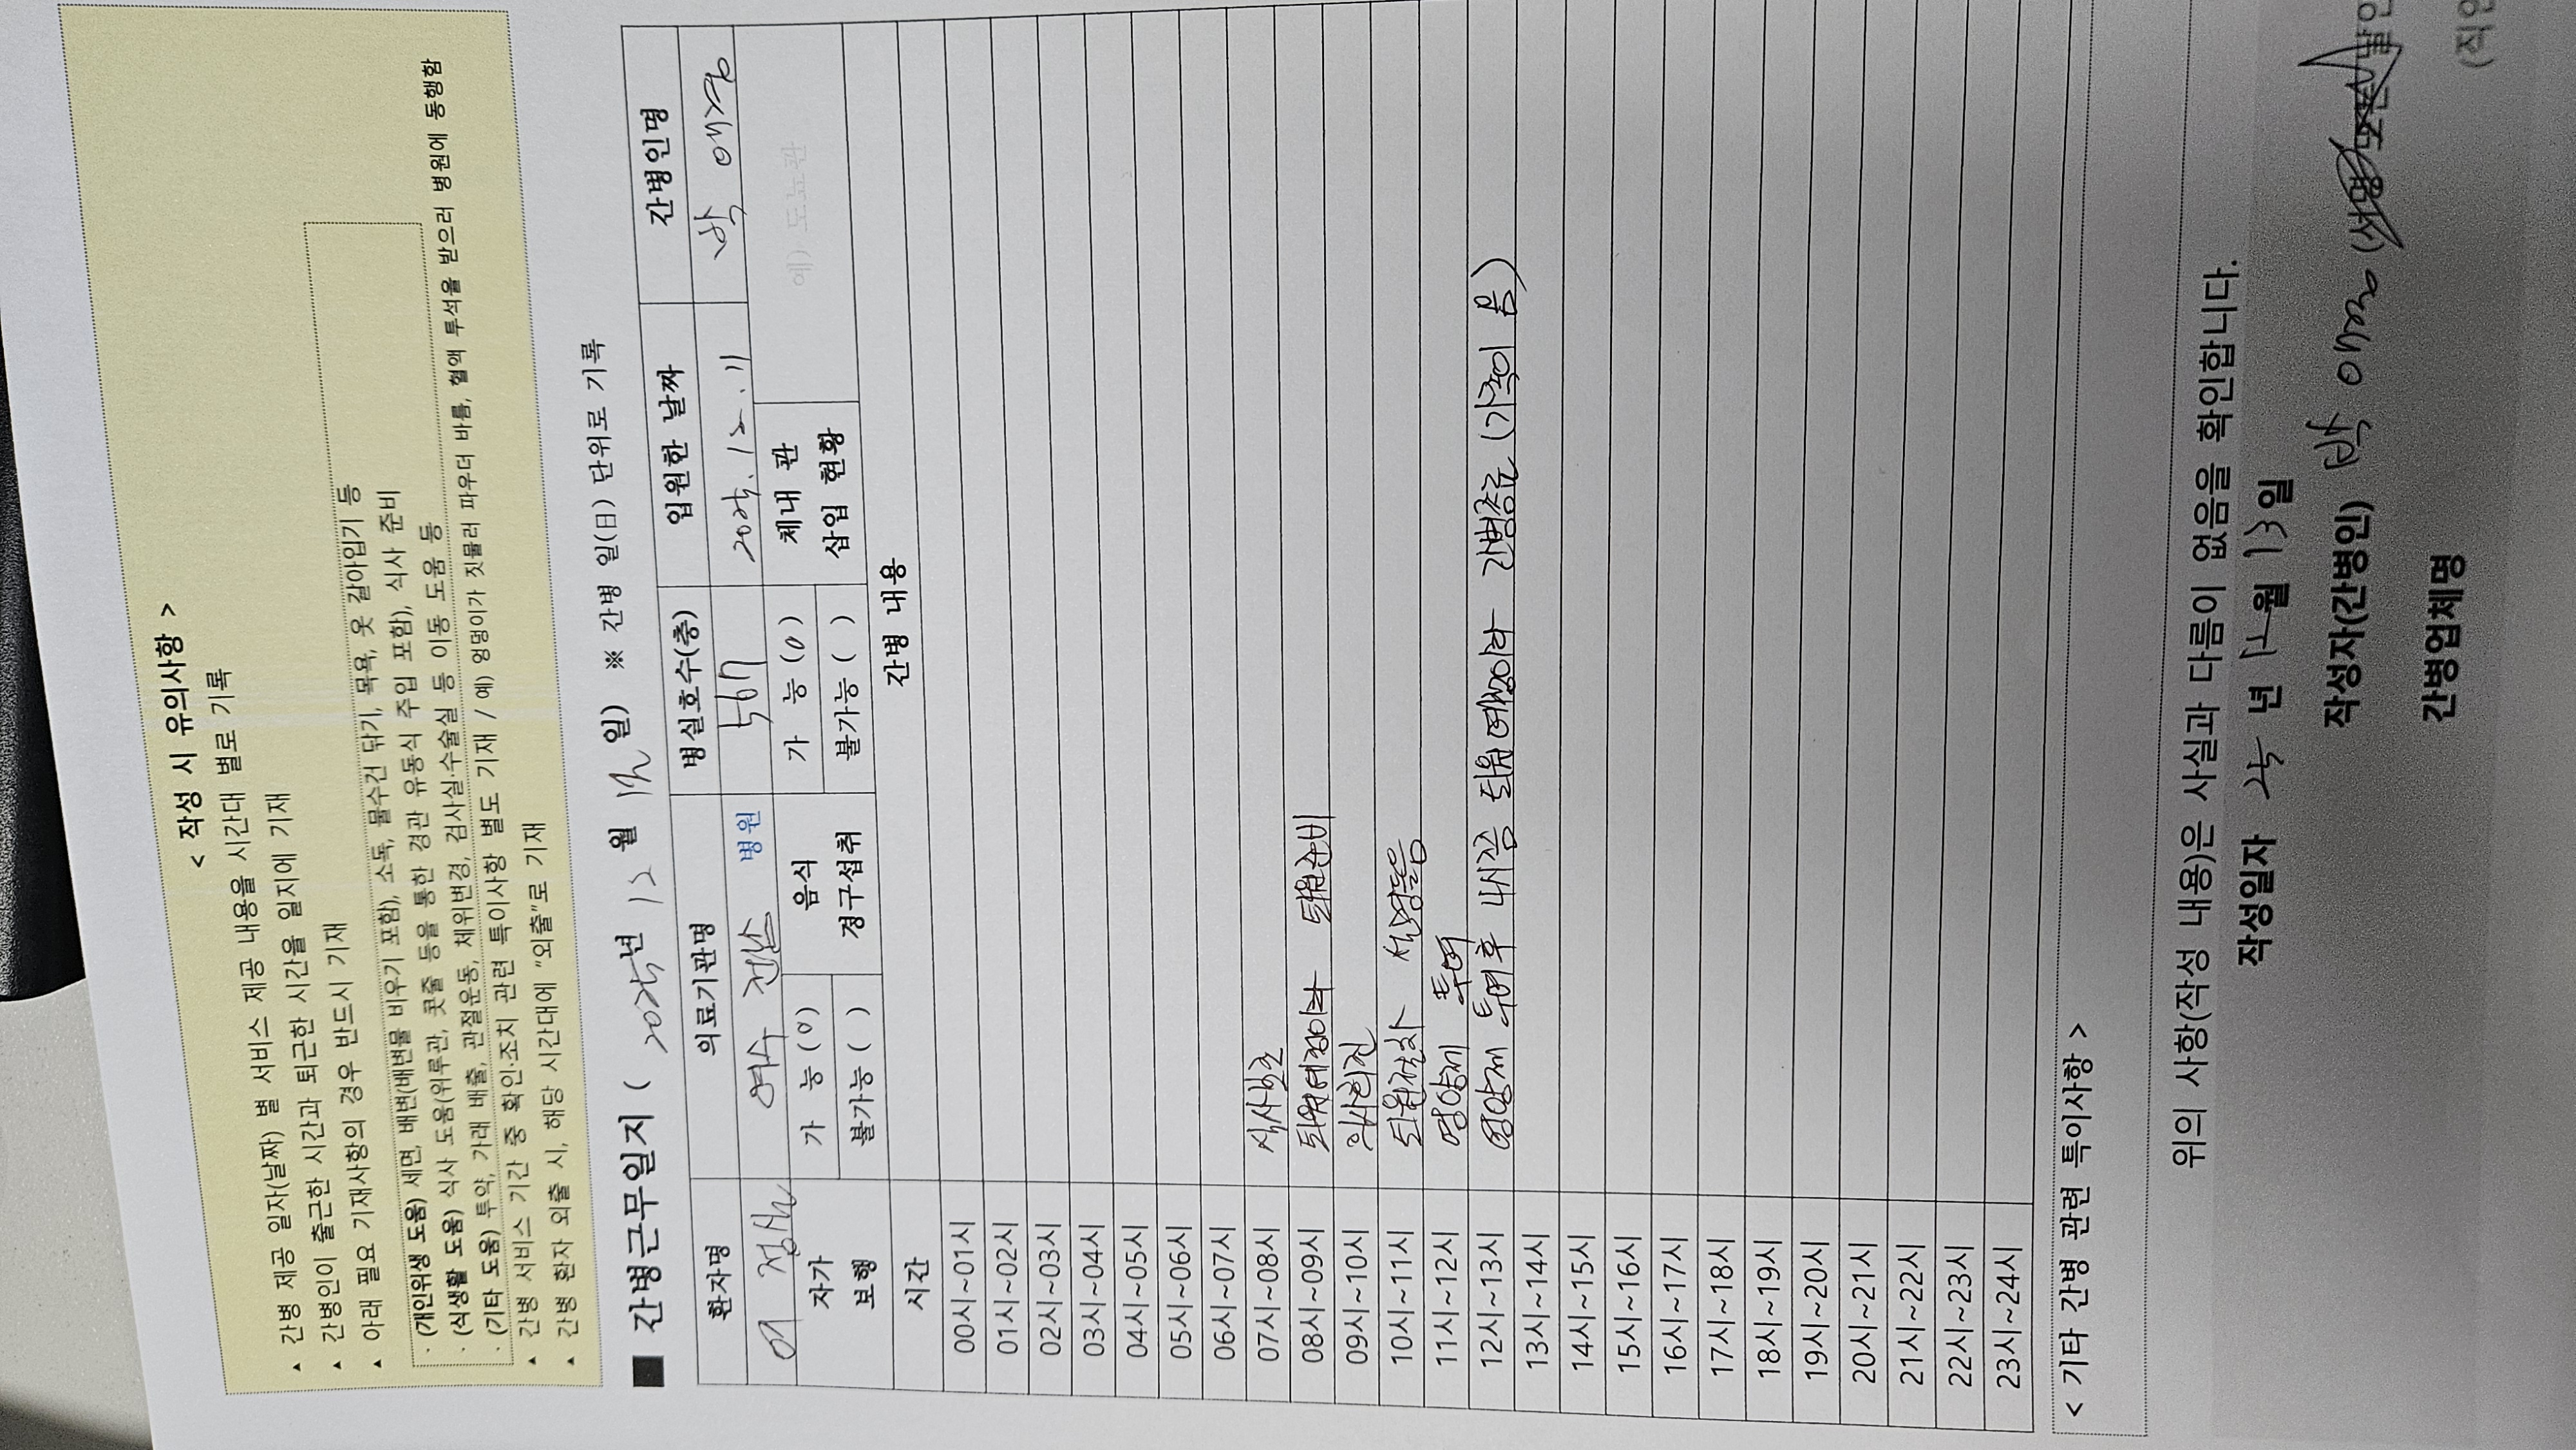 < 작성 시 유의사항 >
▲ 간병 제공 일자(날짜) 별 서비스 제공 내용을 시간대 별로 기록
▲ 간병인이 출근한 시간과 퇴근한 시간을 일지에 기재
▲ 아래 필요 기재사항의 경우 반드시 기재
· (개인위생 도움) 세면, 배변(배변물 비우기 포함), 소독, 물수건 닦기, 목욕, 옷 갈아입기 등
· (식생활 도움) 식사 도움(위루관, 콧줄 등을 통한 경관 유동식 주입 포함), 식사 준비
· (기타 도움) 투약, 가래 배출, 관절운동, 체위변경, 검사실·수술실 등 이동 도움 등
▲ 간병 서비스 기간 중 확인·조치 관련 특이사항 별도 기재 / 예) 엉덩이가 짓물러 파우더 바름, 혈액 투석을 받으러 병원에 동행함
▲ 간병 환자 외출 시, 해당 시간대에 "외출"로 기재
■ 간병근무일지 ( 2025년 12 월 일) ※ 간병 일(日) 단위로 기록
환자명 의료기관명 병실호수(층) 입원한 날짜 간병인명
여수 전남 병원 567 2025.12.11 박
자가 보행 가 능 (0) 불가능 ( ) 음식 경구섭취 가 능 (0) 불가능 ( ) 체내 관 삽입 현황 예) 도뇨관
시간 간병 내용
00시~01시
01시~02시
02시~03시
03시~04시
04시~05시
05시~06시
06시~07시
07시~08시 식사보조
08시~09시 퇴원예정이라 퇴원준비
09시~10시 의사회진
10시~11시 퇴원절차 설명들음
11시~12시 영양제 투여
12시~13시 영양제 투여후 4시쯤 퇴원예정이라 간병종료 (가족이 옴)
13시~14시
14시~15시
15시~16시
16시~17시
17시~18시
18시~19시
19시~20시
20시~21시
21시~22시
22시~23시
23시~24시
< 기타 간병 관련 특이사항 >
위의 사항(작성 내용)은 사실과 다름이 없음을 확인합니다.
작성일자 25 년 12월 13일
작성자(간병인) 박 (서명 또는 날인
간병업체명 (직인